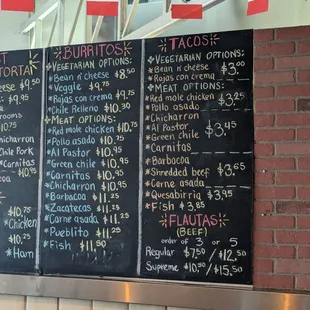 TORTA
cheese
$9.50
$9.95
rooms
$10.75
hicharron
Chile Pork
•Carnitas
ha
$10.75
•Chicken
$10.25
$10.25
•Ham
BURRITOS
•VEGETARIAN OPTIONS:
•Bean n' cheese $8.50
Veggie $9.75
•Rojas con crema $9.75
•Chile Relleno $10.30
•MEAT OPTIONS:
•Red mole chicken $10.75
•Pollo asado $10.75
•Al Pastor $10.95
•Green chile $10.95
•Carnitas $10.95
•Chicharron $10.95
•Barbacoa $11.50
•Zacatecas $11.25
•Carne asada $11.50
•Pueblito $11.25
•Fish $11.50
TACOS
•VEGETARIAN OPTIONS:
•Bean n cheese $3.00
•Rojas con crema
•MEAT OPTIONS:
•Red mole chicken $3.25
•Pollo asado
•Chicharron
•Al Pastor $3.45
•Green Chile
•Carnitas
•Barbacoa
•Shredded beef $3.65
•Carne asada
•Quesabirria $3.95
•Fish $3.85
FLAUTAS
(BEEF)
order of 3 or 5
Regular $7.50 / $12.50
Supreme $10.50 / $15.50